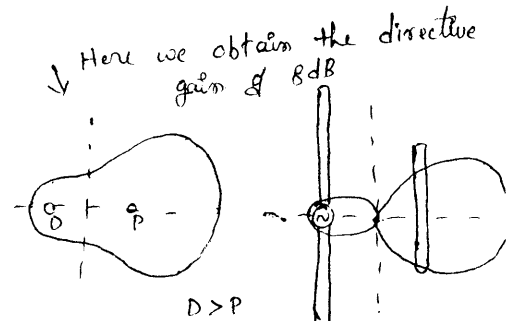 Here we obtain the directive
gain of 8dB
D
P
D > P